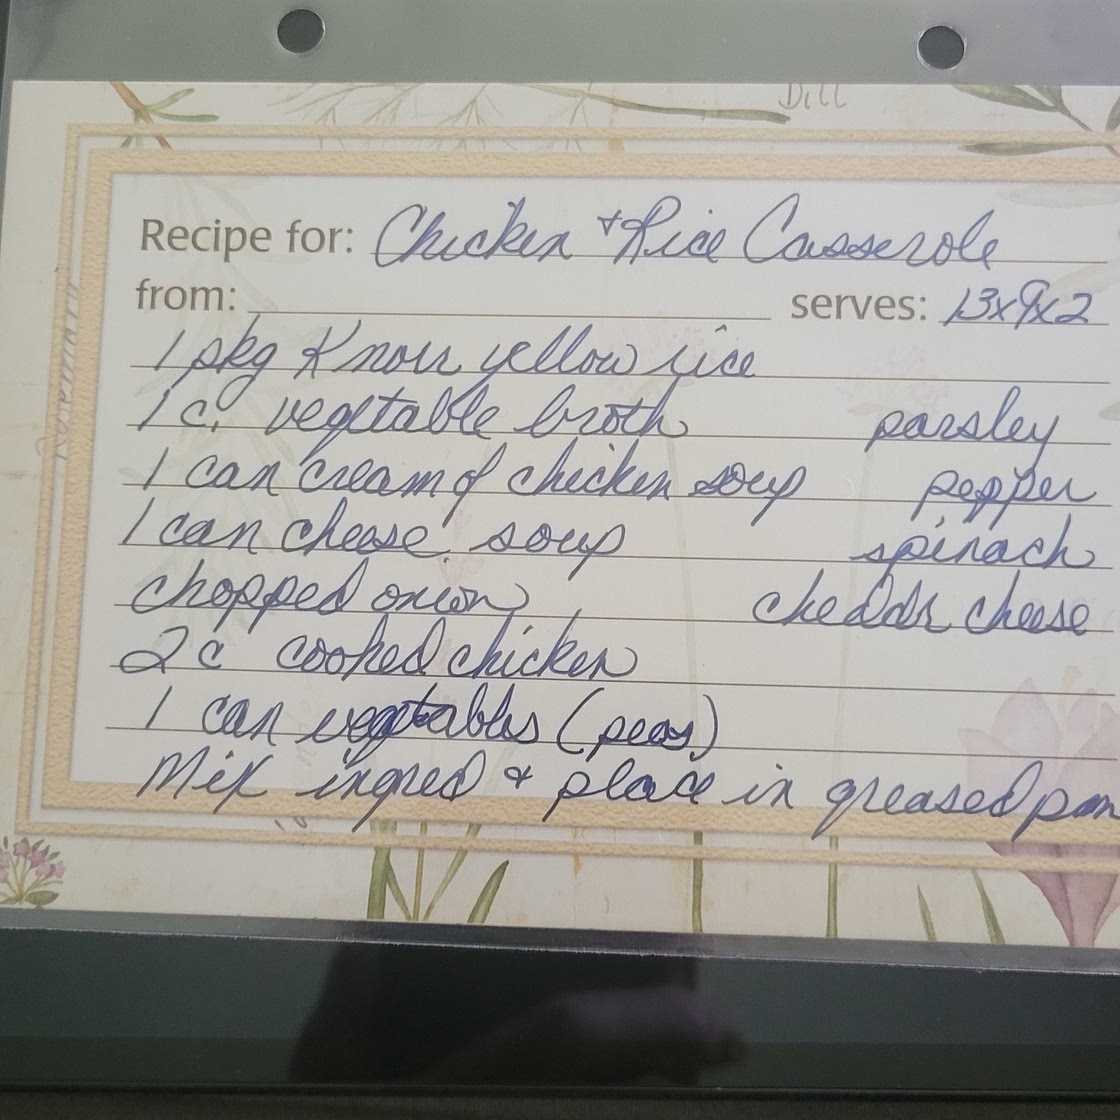 Dill
Recipe for: Chicken + Rice Casserole
from: serves: 13x9x2
Rosemary
1 pkg Knorr yellow rice
1 c. vegetable broth parsley
1 can cream of chicken soup pepper
1 can cheese soup spinach
chopped onion cheddr cheese
2 c cooked chicken
1 can vegetables (peas)
Mix ingred & place in greased pan